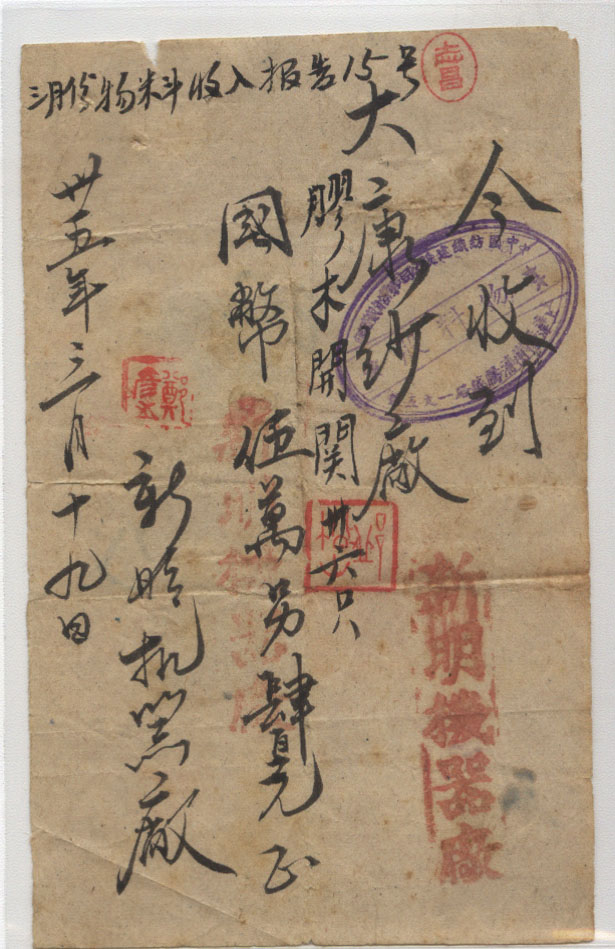 三月份物料收入报告15号
志昌
今收到
大康纱廠
膠木開関卅六只
國幣伍萬另肆百元正
新明机器廠
卅五年三月十九日
新明機器廠